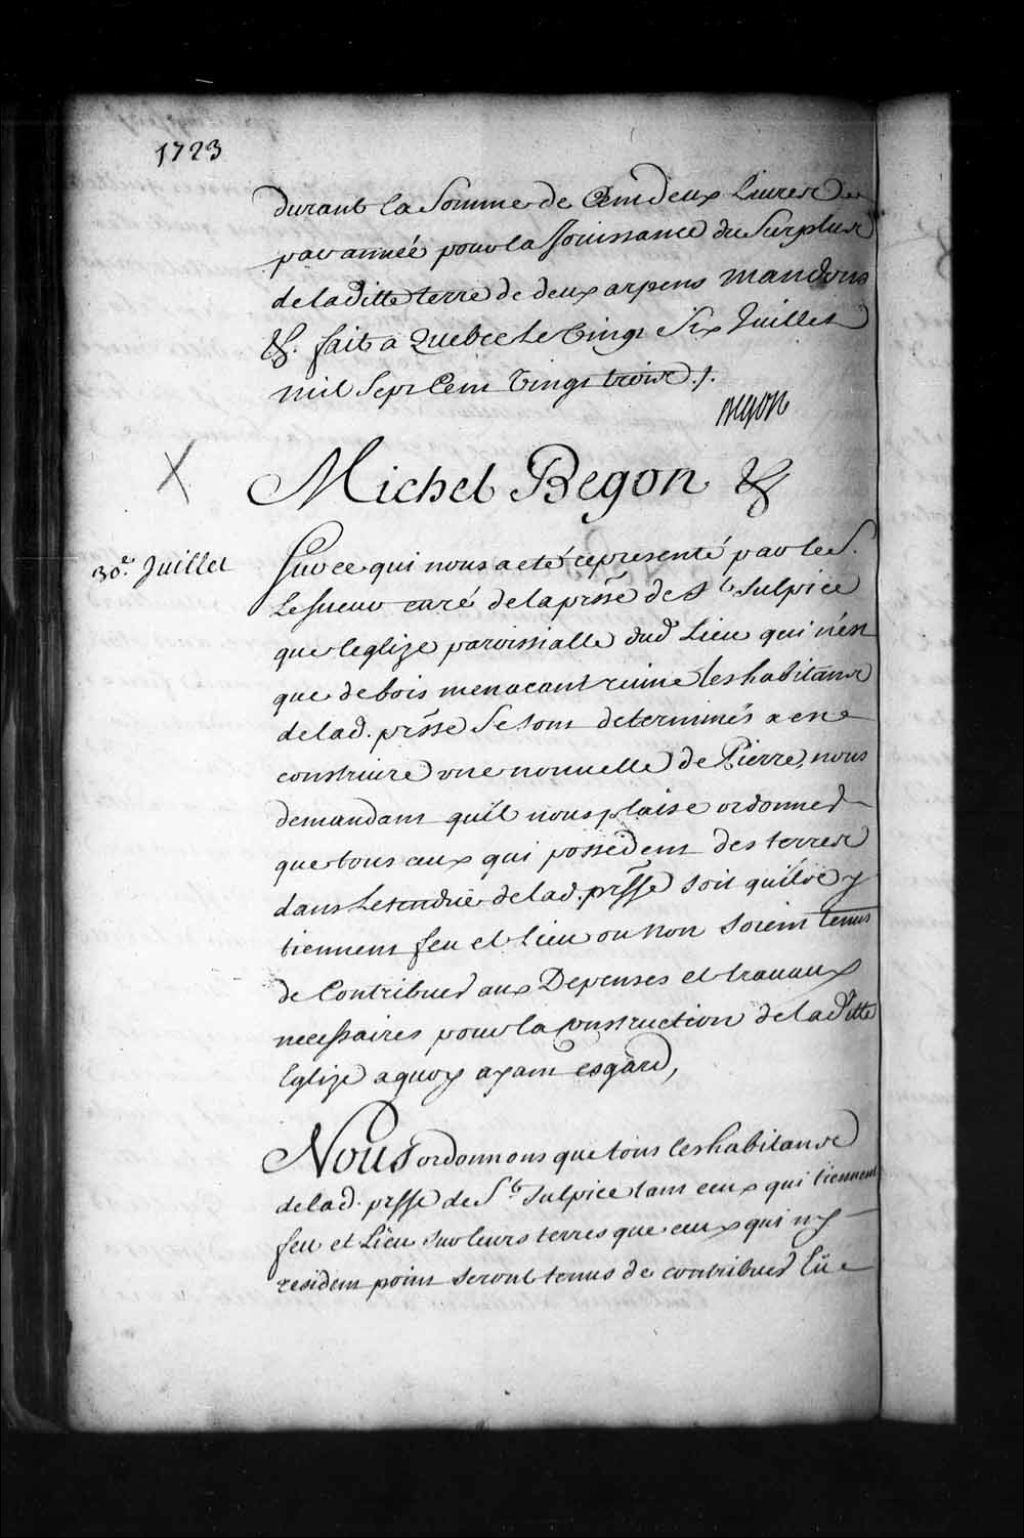 1723
durant la Somme de Cem deux Livres
par année pour la Jouissance du Surplus
de laditte terre de deux arpens mandons
&. fait a Quebec le Vingt Six Juillet
mil Sept Cem Vingt trois ./.
Begon
X
Michel Begon &
30e. Juillet
Sur ce qui nous a eté representé par le S.
Lesueur curé de la prsse de St Sulpice
que leglize paroissialle dud Lieu qui nest
que de bois menacant ruine les habitans
de lad. prsse Se sont determinés a en
construire une nouuelle de Pierre, nous
demandant quil nous plaise ordonner
que tous ceux qui possedent des terres
dans Letendüe de lad. prsse soit quils y
tiennent feu et Lieu ou non soient tenus
de Contribuer aux Depenses et trauaux
necessaires pour la construction de laditte
Eglize a quoy ayant esgard,
Nous ordonnons que tous les habitans
de lad. prsse de St Sulpice tant ceux qui tiennent
feu et Lieu sur leurs terres que ceux qui n'y
resident point seront tenus de contribuer